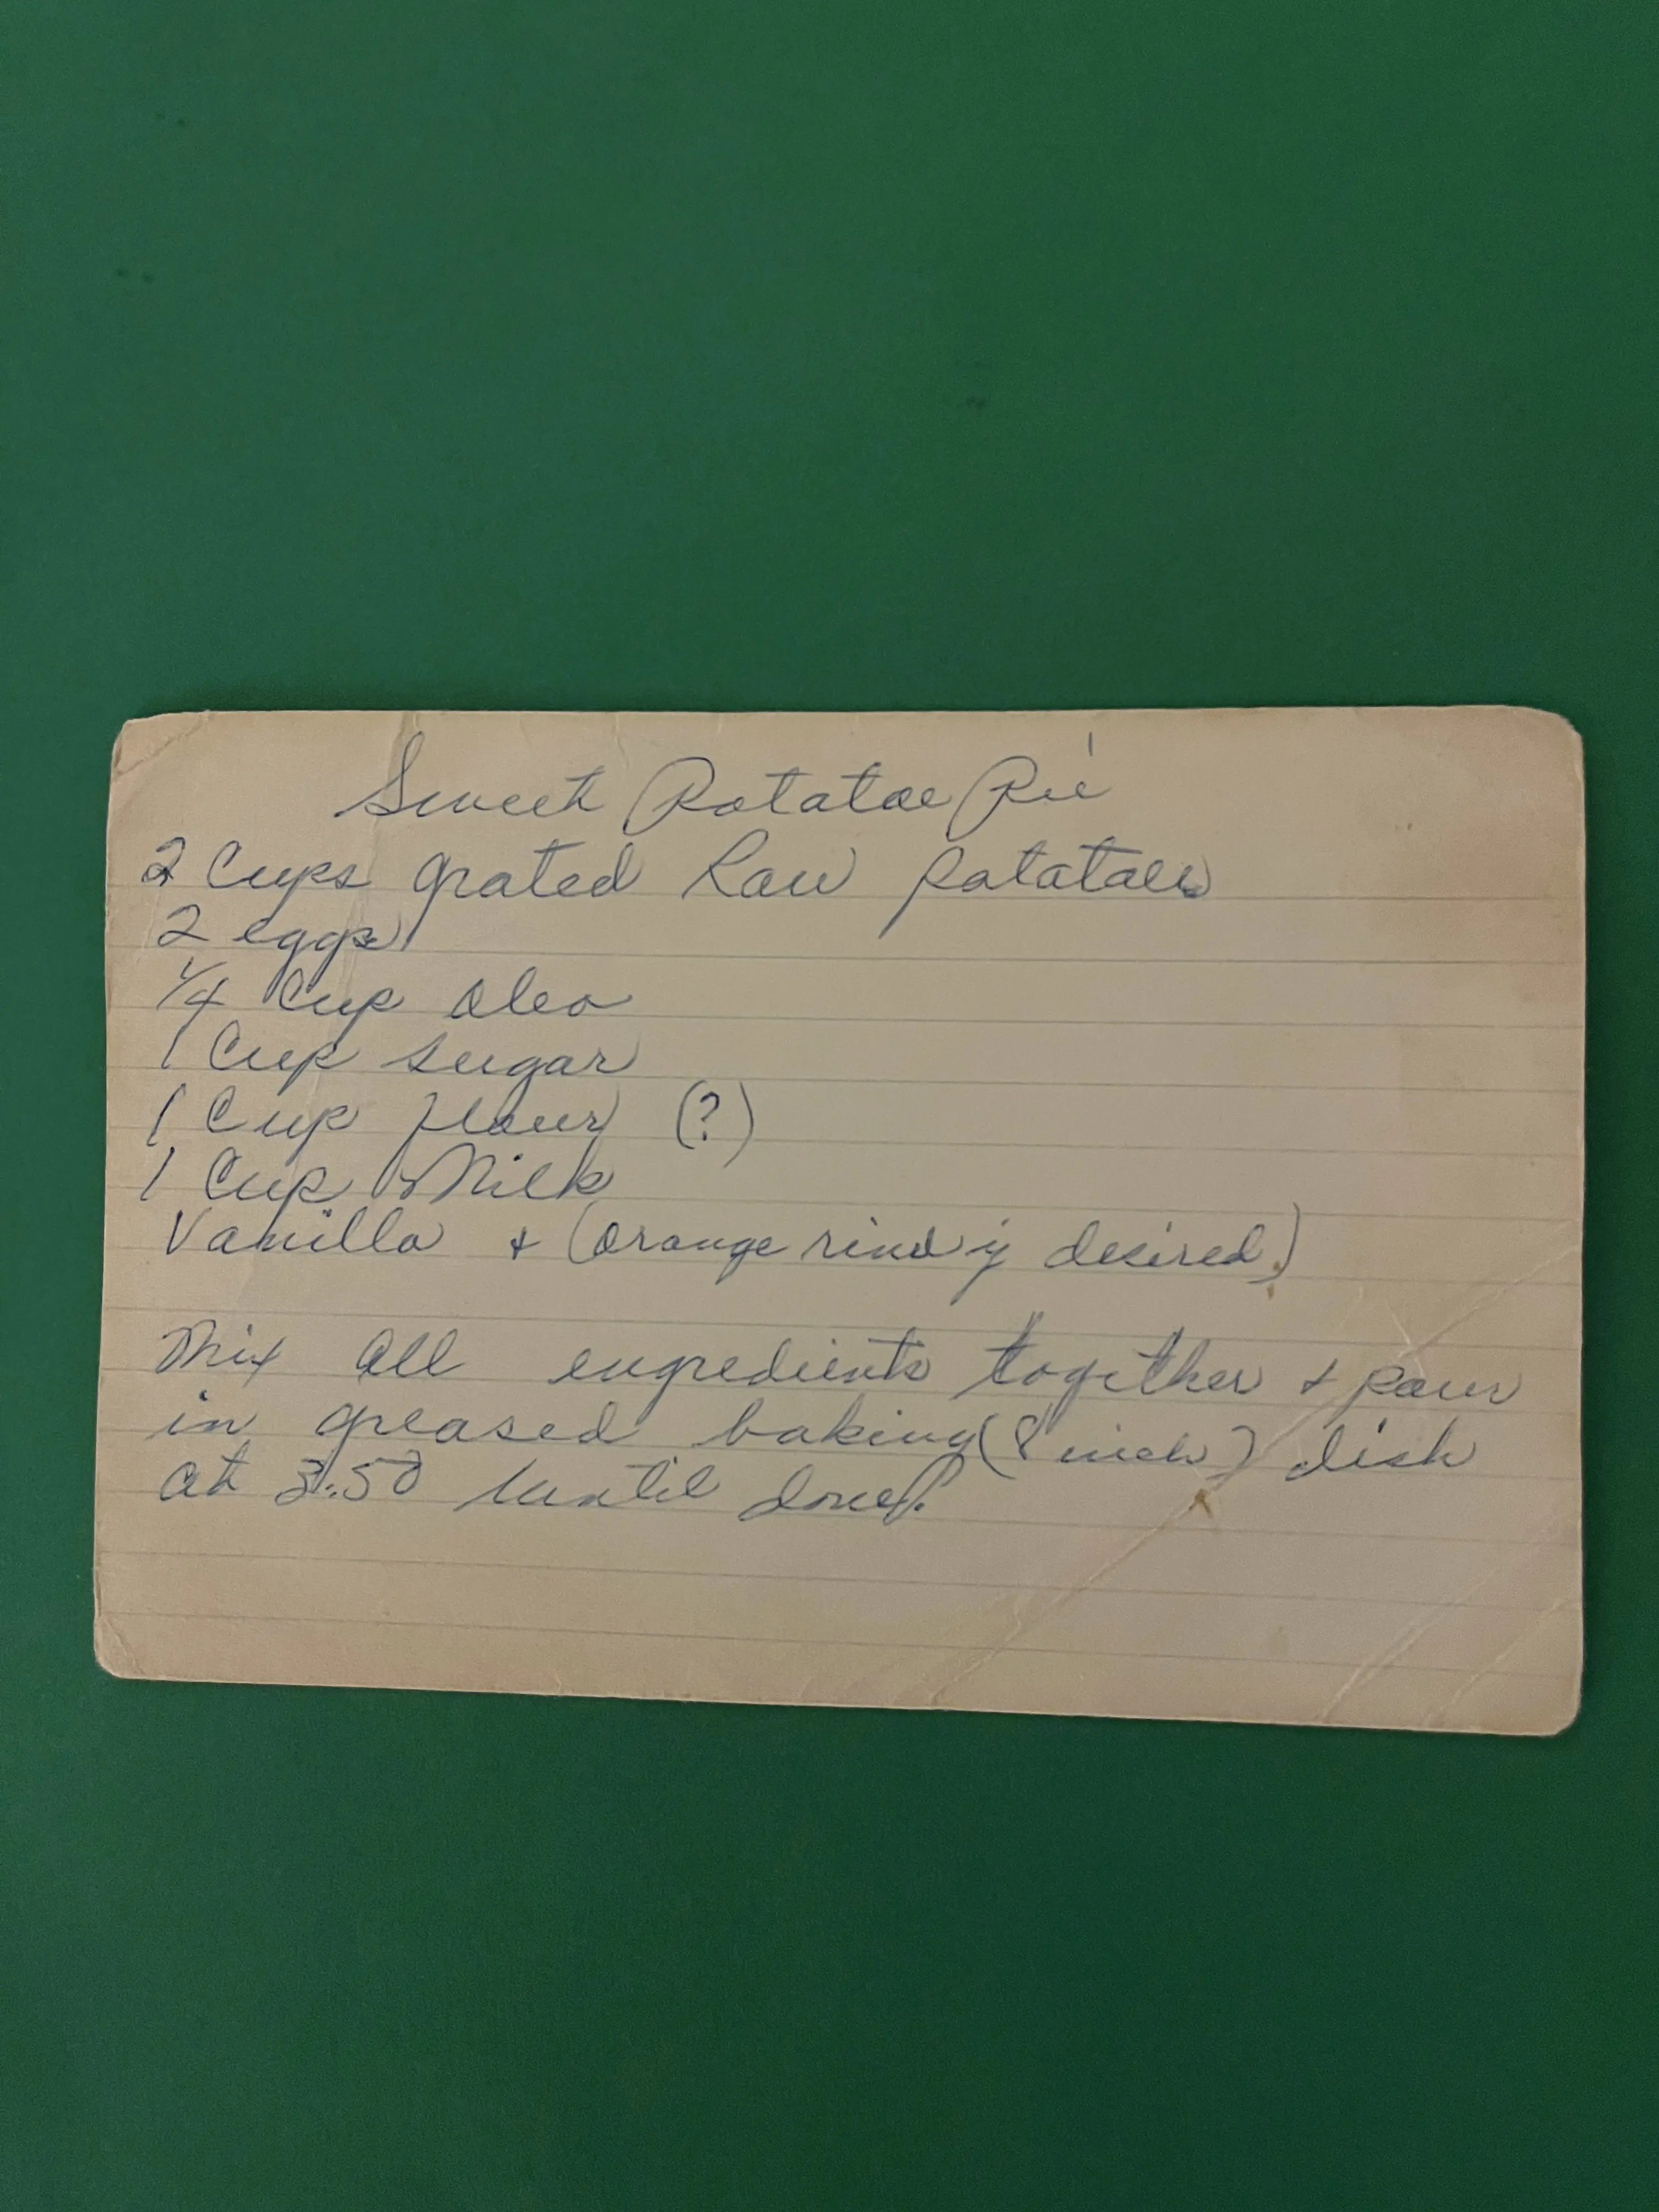 Sweet Potatoe Pie
2 Cups grated Raw potatoes
2 eggs
1/4 Cup oleo
1 Cup sugar
1 Cup flour (?)
1 Cup Milk
Vanilla + (orange rind if desired)
Mix all engredients together + pour
in greased baking (8 inch) dish
at 350 until done.